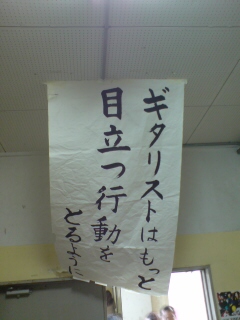 ギタリストはもっと
目立つ行動を
とるように